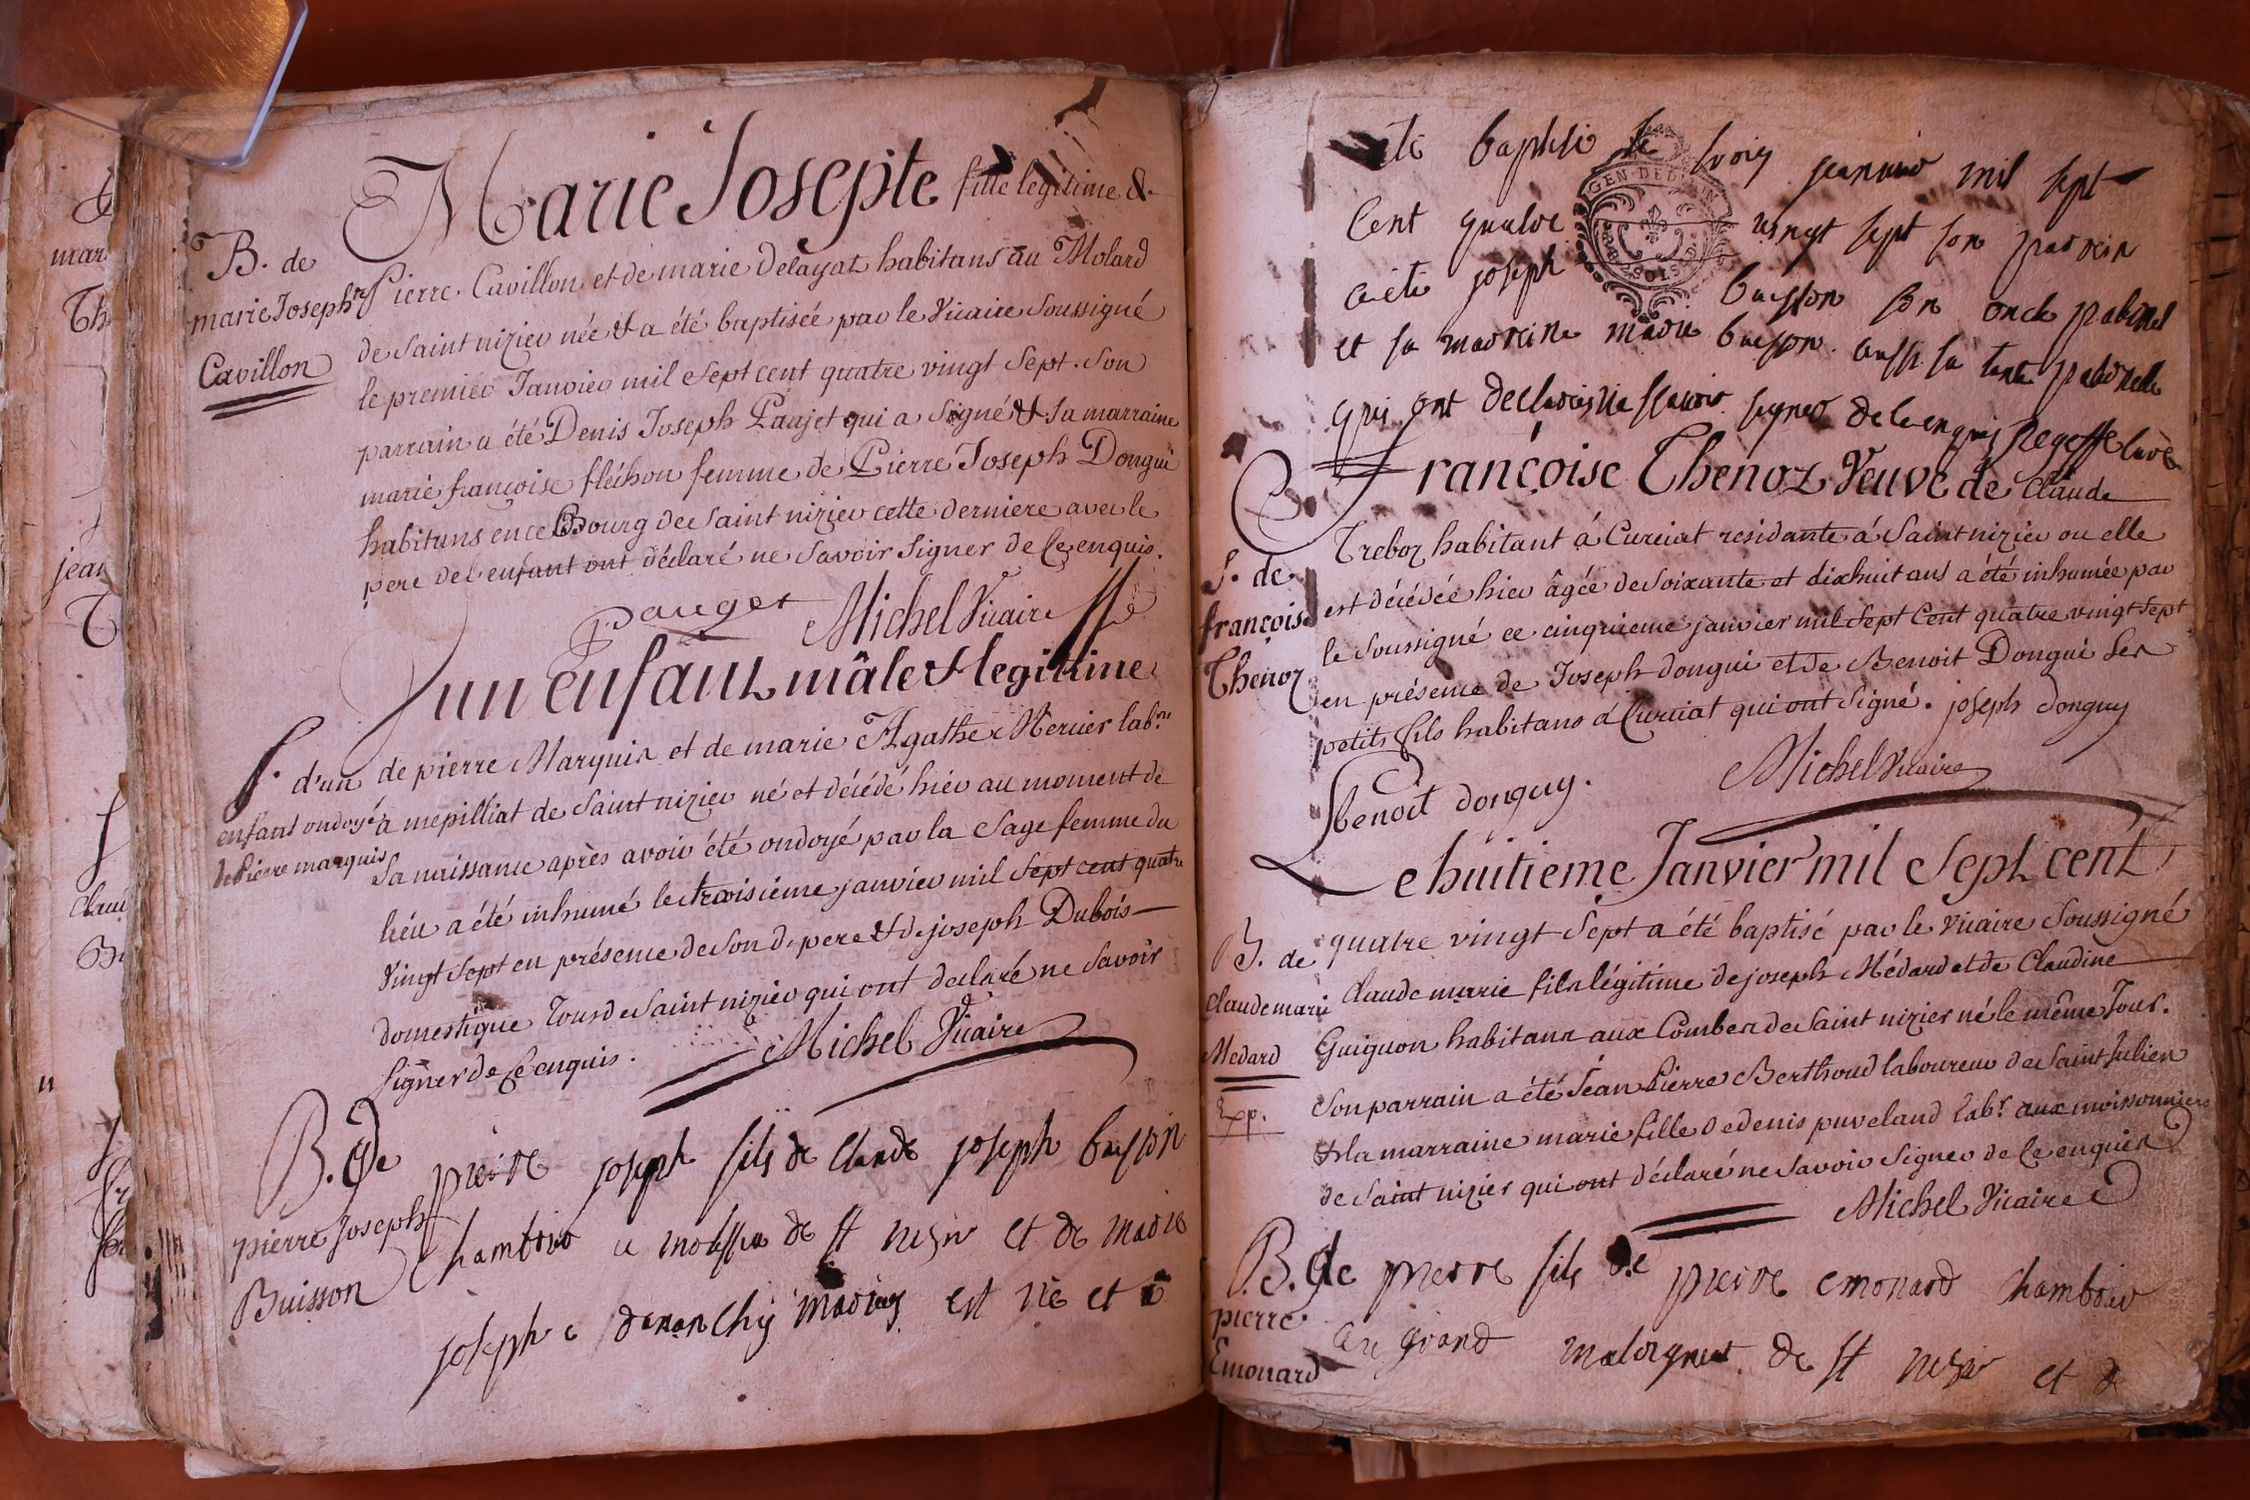 B. de
marie Joseph^te
Cavillon
Marie Josepte fille legitime de
Pierre Cavillon et de marie Delayat habitans au Molard
de Saint nizier née & a été baptisée par le Vicaire Soussigné
le premier Janvier mil Sept cent quatre vingt Sept. Son
parrain a été Denis Joseph Paujet qui a Signé & Sa marraine
marie françoise fléchon femme de Pierre Joseph Dongui
habitans en ce Bourg de Saint nizier cette derniere avec le
pere de l'enfant ont déclaré ne Savoir Signer de Ce enquis.
Pauget Michel Vicaire
S. d'un
enfant ondoyé
de Pierre marquis
un enfant mâle & legitime
de pierre Marquis et de marie Agathe Mercier lab.rs
a mepilliat de Saint nizier né et décédé hier au moment de
Sa naissance après avoir été ondoyé par la Sage femme du
liéu a été inhumé le troisième janvier mil Sept cent quatre
vingt Sept en présence de Son d. pere & de joseph Dubois
domestique tous de Saint nizier qui ont declaré ne Savoir
Signer de Ce enquis.
Michel Vicaire
B. de
pierre Joseph
Buisson
pierre joseph fils de claude joseph buisson
chambrier a de st nizier et de marie
joseph e mariez est né et a
été baptisé le janvier mil sept
cent quatre vingt sept son parrein
a été joseph buisson son oncle paternel
et sa marreine marie buisson aussi sa tante paternelle
qui ont declarez ne scavoir signer de ce enquis
S. de
françoise
Thenoz
Françoise Thenoz Veuve de Claude
Treboz habitant á Curciat residante á Saint nizier ou elle
est décédée hier âgée de Soixante et dixhuit ans a été inhumée par
le Soussigné ce cinquieme janvier mil Sept Cent quatre vingt Sept
en présence de Joseph dongui et de Benoit Dongui Ses
petits fils habitans á Curciat qui ont Signé. joseph donguy
Benoit donguy. Michel Vicaire
Le huitieme Janvier mil Sept cent
B. de
Claude marie
Medard
Exp.
quatre vingt Sept a été baptisé par le Vicaire Soussigné
Claude marie fils légitime de joseph Médard et de Claudine
Guiguon habitans aux Combes de Saint nizier né le même Jour.
Son parrain a été Jean Pierre Berthoud laboureur de Saint Julien
& la marraine marie fille de denis puveland lab.r aux moissonniers
de Saint nizier qui ont déclaré ne Savoir Signer de Ce enquis
Michel Vicaire
B. de
pierre
Emonard
pierre fils de pierre emonard chambrier
au grand de st nizier et de